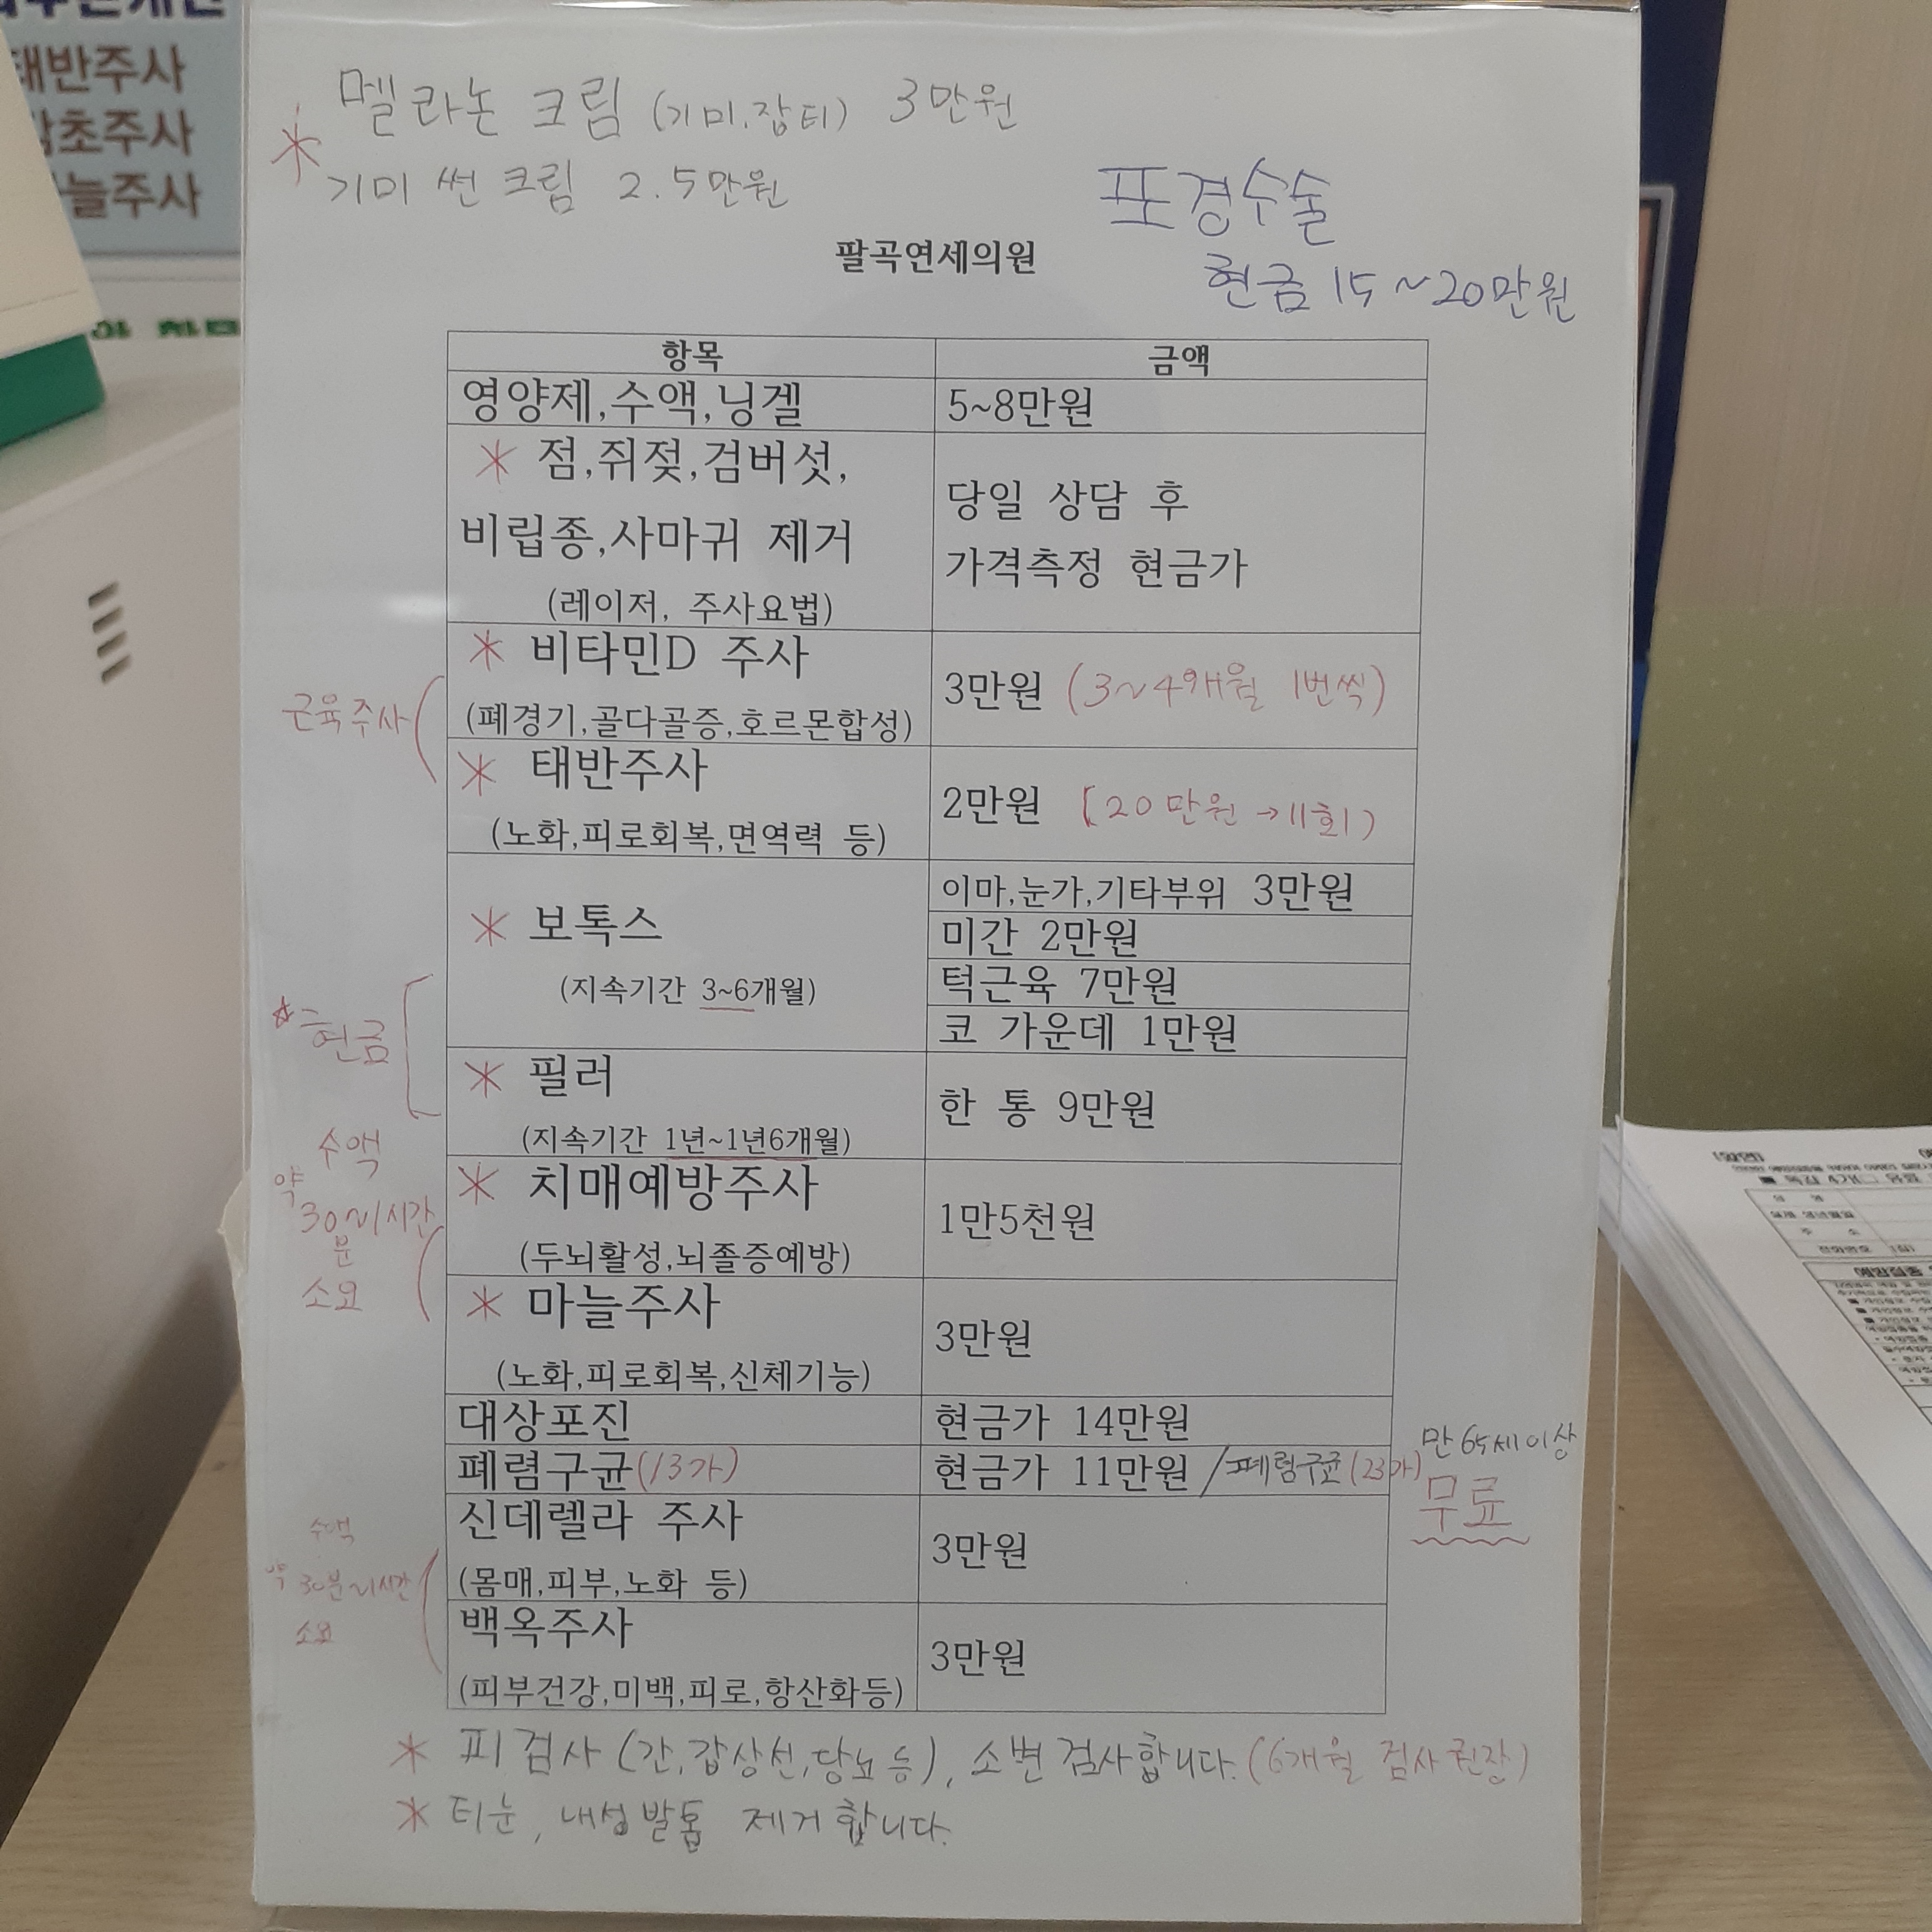 태반주사
초주사
늘주사
멜라논 크림 (기미.잡티) 3만원
*
기미 썬크림 2.5만원
포경수술
현금 15~20만원
팔곡연세의원
항목 금액
영양제,수액,닝겔 5~8만원
* 점,쥐젖,검버섯,
비립종,사마귀 제거
(레이저, 주사요법)
당일 상담 후
가격측정 현금가
근육주사
* 비타민D 주사
(폐경기,골다골증,호르몬합성)
3만원 (3~4개월 1번씩)
* 태반주사
(노화,피로회복,면역력 등)
2만원 (20만원→11회)
* 보톡스
(지속기간 3~6개월)
이마,눈가,기타부위 3만원
미간 2만원
턱근육 7만원
코 가운데 1만원
*현금
* 필러
(지속기간 1년~1년6개월)
한 통 9만원
수액
약
30~1시간
분
소요
* 치매예방주사
(두뇌활성,뇌졸증예방)
1만5천원
* 마늘주사
(노화,피로회복,신체기능)
3만원
대상포진 현금가 14만원
폐렴구균(13가) 현금가 11만원 /폐렴구균(23가)
만65세이상
무료
수액
약 30분~1시간
소요
신데렐라 주사
(몸매,피부,노화 등)
3만원
백옥주사
(피부건강,미백,피로,항산화등)
3만원
* 피검사 (간,갑상선,당뇨등), 소변검사합니다. (6개월 검사권장)
* 티눈, 내성발톱 제거합니다.